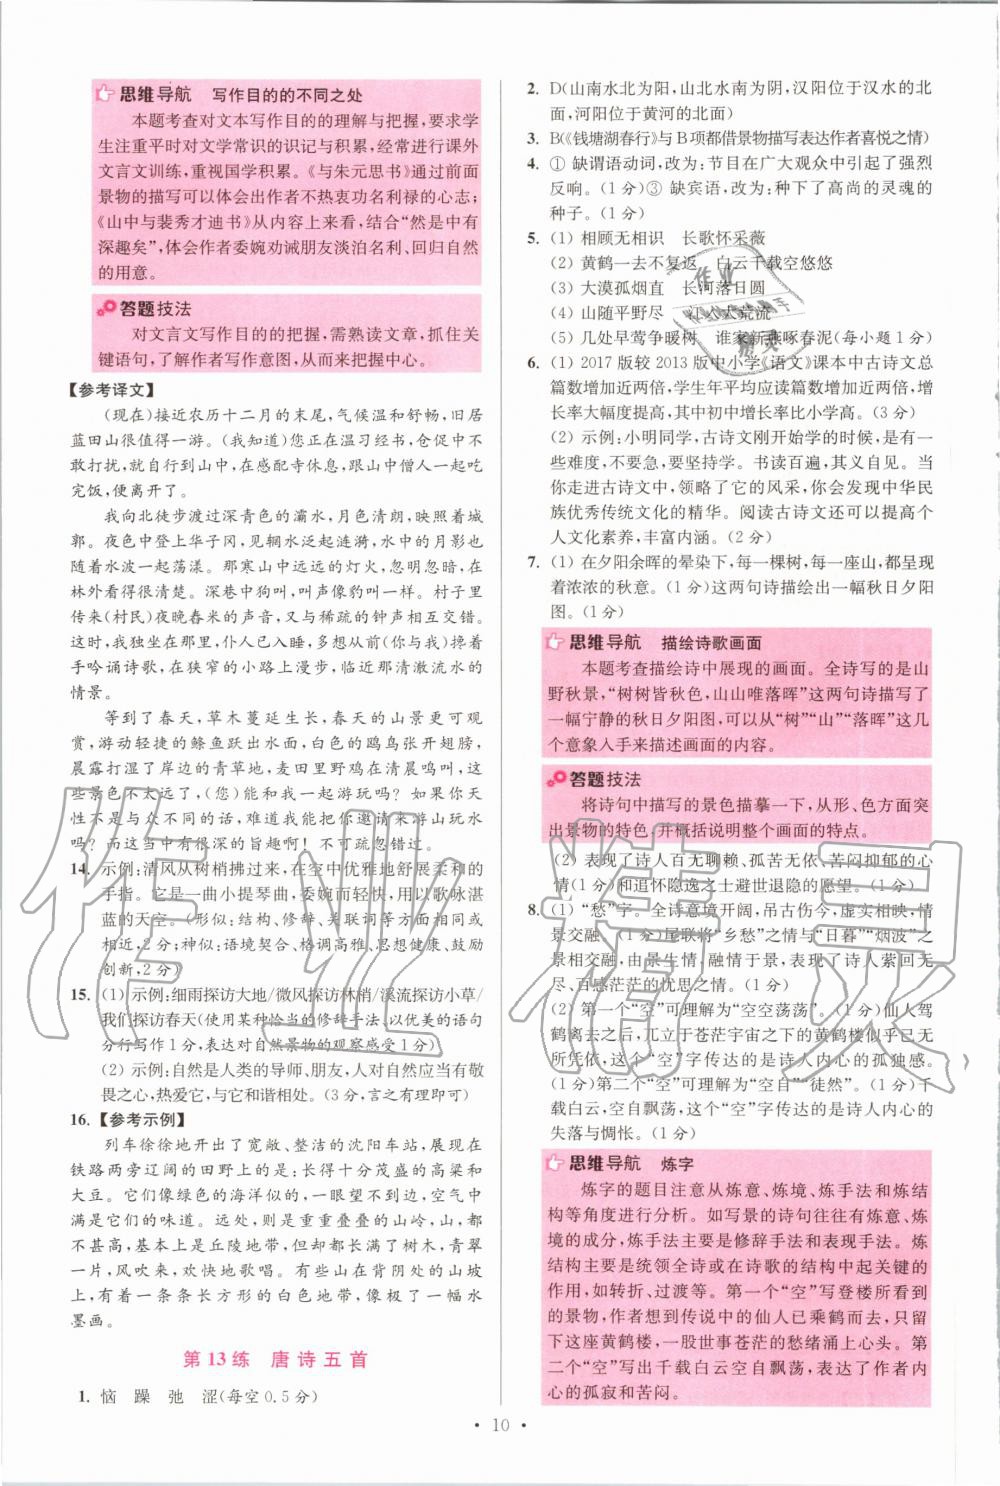 思维导航 写作目的的不同之处
本题考查对文本写作目的的理解与把握,要求学
生注重平时对文学常识的识记与积累,经常进行课外
文言文训练,重视国学积累。《与朱元思书》通过前面
景物的描写可以体会出作者不热衷功名利禄的心志;
《山中与裴秀才迪书》从内容上来看,结合“然是中有
深趣矣”,体会作者委婉劝诫朋友淡泊名利、回归自然
的用意。
答题技法
对文言文写作目的的把握,需熟读文章,抓住关
键语句,了解作者写作意图,从而来把握中心。
【参考译文】
(现在)接近农历十二月的末尾,气候温和舒畅,旧居
蓝田山很值得一游。(我知道)您正在温习经书,仓促中不
敢打扰,就自行到山中,在感配寺休息,跟山中僧人一起吃
完饭,便离开了。
我向北徒步渡过深青色的灞水,月色清朗,映照着城
郭。夜色中登上华子冈,见辋水泛起涟漪,水中的月影也
随着水波一起荡漾。那寒山中远远的灯火,忽明忽暗,在
林外看得很清楚。深巷中狗叫,叫声像豹叫一样。村子里
传来(村民)夜晚舂米的声音,又与稀疏的钟声相互交错。
这时,我独坐在那里,仆人已入睡,多想从前(你与我)搀着
手吟诵诗歌,在狭窄的小路上漫步,临近那清澈流水的
情景。
等到了春天,草木蔓延生长,春天的山景更可观
赏,游动轻捷的鲦鱼跃出水面,白色的鸥鸟张开翅膀,
晨露打湿了岸边的青草地,麦田里野鸡在清晨鸣叫,这
些景色不太远了,(您)能和我一起游玩吗?如果你天
性不是与众不同的话,难道我能邀请你来游山玩水
吗?而这当中有很深的旨趣啊!不可疏忽错过。
14. 示例:清风从树梢拂过来,在空中优雅地舒展柔和的
手指。它是一曲小提琴曲,委婉而轻快,用以歌咏湛
蓝的天空。(形似:结构、修辞、关联词等方面相同或
相近,2分;神似:语境契合、格调高雅、思想健康、鼓励
创新,2分)
15. (1) 示例:细雨探访大地/微风探访林梢/溪流探访小草/
我们探访春天(使用某种恰当的修辞手法,以优美的语句
分行写作1分,表达对自然景物的观察感受1分)
(2) 示例:自然是人类的导师、朋友,人对自然应当有敬
畏之心,热爱它,与它和谐相处。(3分,言之有理即可)
16. 【参考示例】
列车徐徐地开出了宽敞、整洁的沈阳车站,展现在
铁路两旁辽阔的田野上的是:长得十分茂盛的高粱和
大豆。它们像绿色的海洋似的,一眼望不到边,空气中
满是它们的味道。远处,则是重重叠叠的山岭,山,都
不甚高,基本上是丘陵地带,但却都长满了树木,青翠
一片,风吹来,欢快地歌唱。有些山在背阴处的山坡
上,有着一条条长方形的白色地带,像极了一幅水
墨画。
第13练 唐诗五首
1. 恼 躁 弛 涩(每空0.5分)
2. D(山南水北为阳,山北水南为阴,汉阳位于汉水的北
面,河阳位于黄河的北面)
3. B(《钱塘湖春行》与B项都借景物描写表达作者喜悦之情)
4. ① 缺谓语动词,改为:节目在广大观众中引起了强烈
反响。(1分)③ 缺宾语,改为:种下了高尚的灵魂的
种子。(1分)
5. (1) 相顾无相识 长歌怀采薇
(2) 黄鹤一去不复返 白云千载空悠悠
(3) 大漠孤烟直 长河落日圆
(4) 山随平野尽 江入大荒流
(5) 几处早莺争暖树 谁家新燕啄春泥(每小题1分)
6. (1) 2017版较2013版中小学《语文》课本中古诗文总
篇数增加近两倍,学生年平均应读篇数增加近两倍,增
长率大幅度提高,其中初中增长率比小学高。(3分)
(2) 示例:小明同学,古诗文刚开始学的时候,是有一
些难度,不要急,要坚持学。书读百遍,其义自见。当
你走进古诗文中,领略了它的风采,你会发现中华民
族优秀传统文化的精华。阅读古诗文还可以提高个
人文化素养,丰富内涵。(2分)
7. (1) 在夕阳余晖的晕染下,每一棵树,每一座山,都呈现
着浓浓的秋意。(1分)这两句诗描绘出一幅秋日夕阳
图。(1分)
思维导航 描绘诗歌画面
本题考查描绘诗中展现的画面。全诗写的是山
野秋景,“树树皆秋色,山山唯落晖”这两句诗描写了
一幅宁静的秋日夕阳图,可以从“树”“山”“落晖”这几
个意象入手来描述画面的内容。
答题技法
将诗句中描写的景色描摹一下,从形、色方面突
出景物的特色,并概括说明整个画面的特点。
(2) 表现了诗人百无聊赖、孤苦无依、苦闷抑郁的心
情(1分)和追怀隐逸之士避世退隐的愿望。(1分)
8. (1) “愁”字。全诗意境开阔,吊古伤今,虚实相映,情
景交融。(1分)尾联将“乡愁”之情与“日暮”“烟波”之
景相交融,由景生情,情景交融,表现了诗人萦回无
尽、百感茫茫的忧思之情。(1分)
(2) 第一个“空”可理解为“空空荡荡”。(1分)仙人驾
鹤离去之后,兀立于苍茫宇宙之下的黄鹤楼似乎已无
所凭依,这个“空”字传达的是诗人内心的孤独感。
(1分)第二个“空”可理解为“空自”“徒然”。(1分)千
载白云,空自飘荡,这个“空”字传达的是诗人内心的
失落与惆怅。(1分)
思维导航 炼字
炼字的题目注意从炼意、炼境、炼手法和炼结
构等角度进行分析。如写景的诗句往往有炼意、炼
境的成分,炼手法主要是修辞手法和表现手法。炼
结构主要是统领全诗或在诗歌的结构中起关键的
作用,如转折、过渡等。第一个“空”写登楼所看到
的景物,作者想到传说中的仙人已乘鹤而去,只留
下这座黄鹤楼,一股世事苍茫的愁绪涌上心头。第
二个“空”写出千载白云空自飘荡,表达了诗人内
心的孤寂和苦闷。
• 10 •